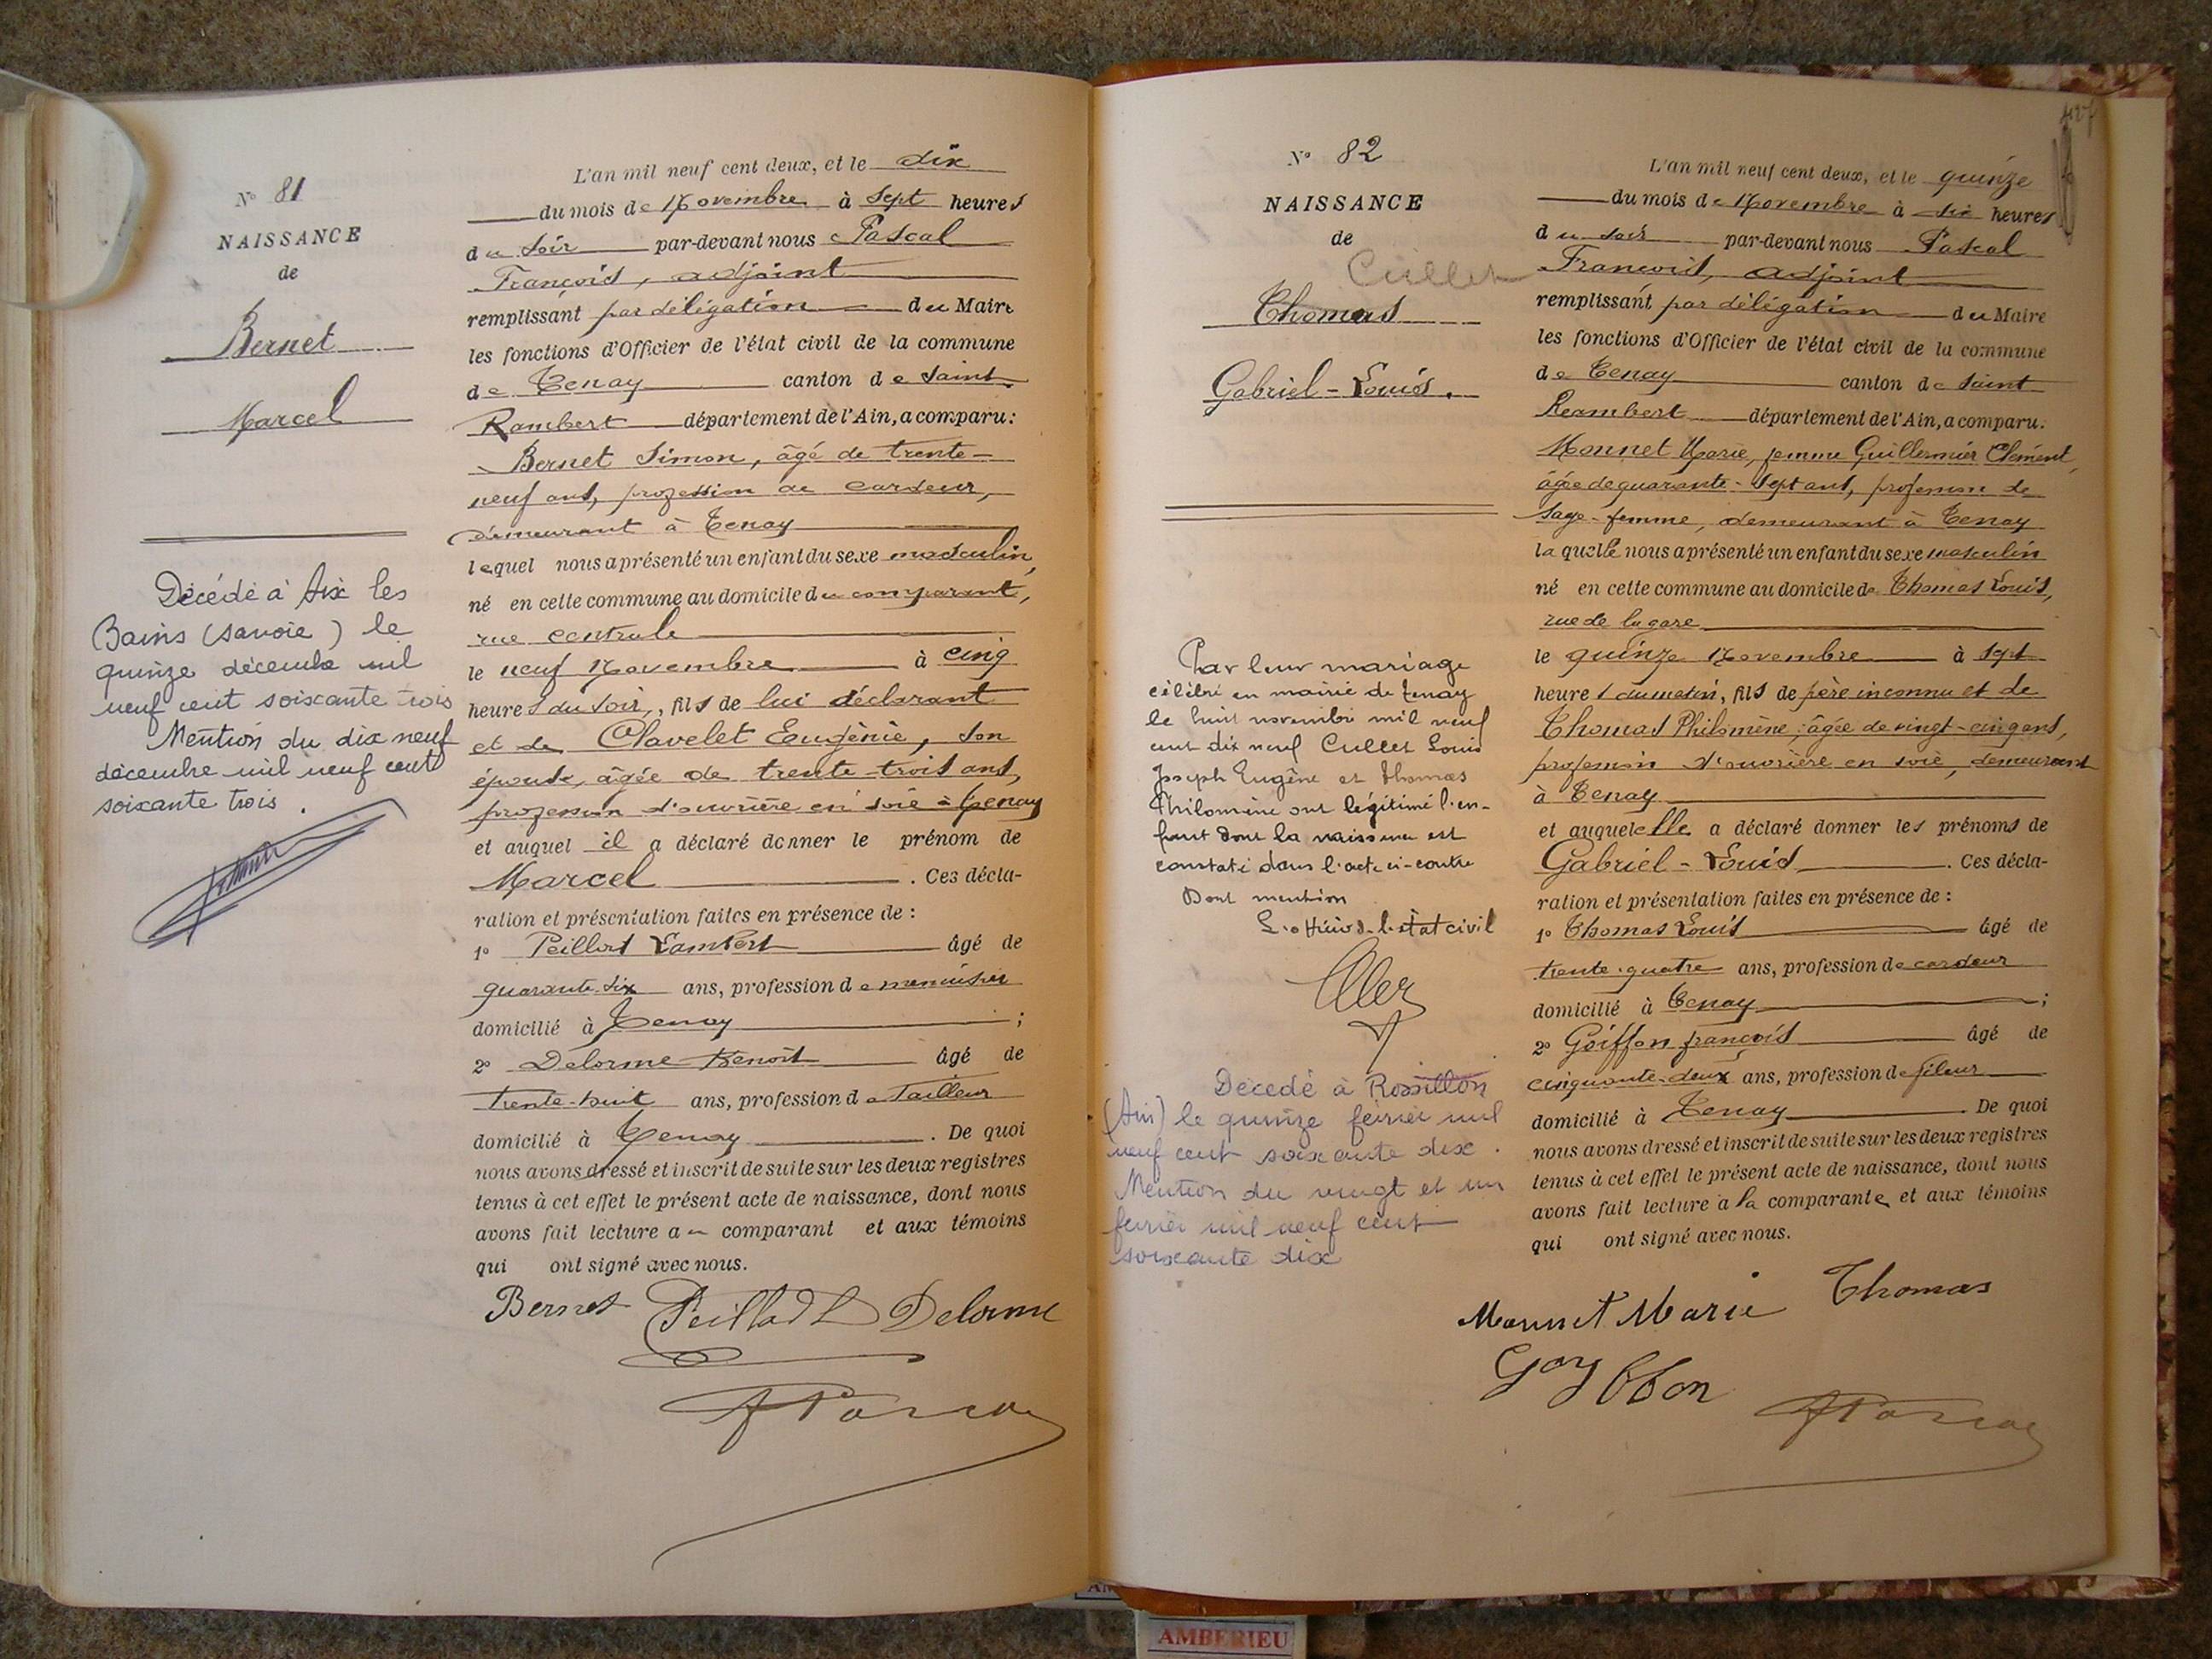 N° 81
NAISSANCE
de
Bernet
Marcel
Décédé à Aix les
Bains (Savoie) le
quinze décembre mil
neuf cent soixante trois
Mention du dix neuf
décembre mil neuf cent
soixante trois.
L'an mil neuf cent deux, et le dix
du mois de Novembre à sept heures
du soir par-devant nous Pascal
François, adjoint
remplissant par délégation du Maire
les fonctions d'Officier de l'état civil de la commune
de Tenay canton de Saint-
Rambert département de l'Ain, a comparu:
Bernet Simon, âgé de trente-
neuf ans, profession de cardeur,
demeurant à Tenay
lequel nous a présenté un enfant du sexe masculin,
né en cette commune au domicile du comparant,
rue centrale
le neuf Novembre à cinq
heures du soir, fils de lui déclarant
et de Clavelet Eugénie, son
épouse, âgée de trente-trois ans,
profession d'ouvrière en soie à Tenay
et auquel il a déclaré donner le prénom de
Marcel. Ces décla-
ration et présentation faites en présence de :
1° Peillod Lambert âgé de
quarante-six ans, profession de menuisier
domicilié à Tenay ;
2° Delorme Benoît âgé de
trente-huit ans, profession de Tailleur
domicilié à Tenay. De quoi
nous avons dressé et inscrit de suite sur les deux registres
tenus à cet effet le présent acte de naissance, dont nous
avons fait lecture au comparant et aux témoins
qui ont signé avec nous.
Bernet Peillod L Delorme
F Pascal
127
N° 82
NAISSANCE
de
Cullet
Thomas
Gabriel-Louis.
Par leur mariage
célébré en mairie de Tenay
le huit novembre mil neuf
cent dix neuf Cullet Louis
Joseph Eugène et Thomas
Philomène ont légitimé l'en-
fant dont la naissance est
constaté dans l'acte ci-contre
Dont mention
L'officier de l'état civil
Décédé à Rossillon
(Ain) le quinze février mil
neuf cent soixante dix.
Mention du vingt et un
février mil neuf cent
soixante dix
L'an mil neuf cent deux, et le quinze
du mois de Novembre à six heures
du soir par-devant nous Pascal
François, adjoint
remplissant par délégation du Maire
les fonctions d'Officier de l'état civil de la commune
de Tenay canton de Saint
Rambert département de l'Ain, a comparu:
Monnet Marie, femme Guillermier Clément,
âgée de quarante-sept ans, profession de
sage-femme, demeurant à Tenay
laquelle nous a présenté un enfant du sexe masculin
né en cette commune au domicile de Thomas Louis,
rue de la gare
le quinze Novembre à sept
heures du matin, fils de père inconnu et de
Thomas Philomène, âgée de vingt-cinq ans,
profession d'ouvrière en soie, demeurant
à Tenay
et auquel elle a déclaré donner les prénoms de
Gabriel-Louis. Ces décla-
ration et présentation faites en présence de :
1° Thomas Louis âgé de
trente-quatre ans, profession de cardeur
domicilié à Tenay ;
2° Goiffon françois âgé de
cinquante-deux ans, profession de fileur
domicilié à Tenay. De quoi
nous avons dressé et inscrit de suite sur les deux registres
tenus à cet effet le présent acte de naissance, dont nous
avons fait lecture à la comparante et aux témoins
qui ont signé avec nous.
Monnet Marie Thomas
F Pascal
AMBERIEU